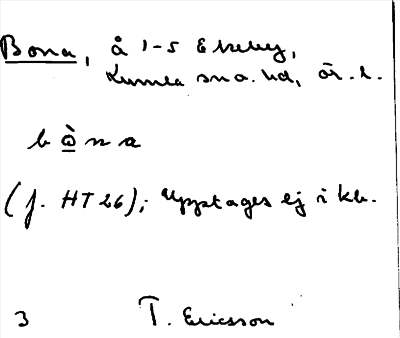 Bona, å 1-5 Ekeby,
Kumla sn o. hd, ör. l.
bo̱̊̀na
(f. HT 26); upptages ej i kb.
3 T. Ericsson